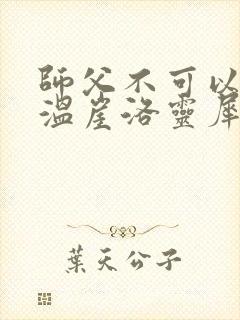 師父不可以
溫崖洛靈犀
葉天公子